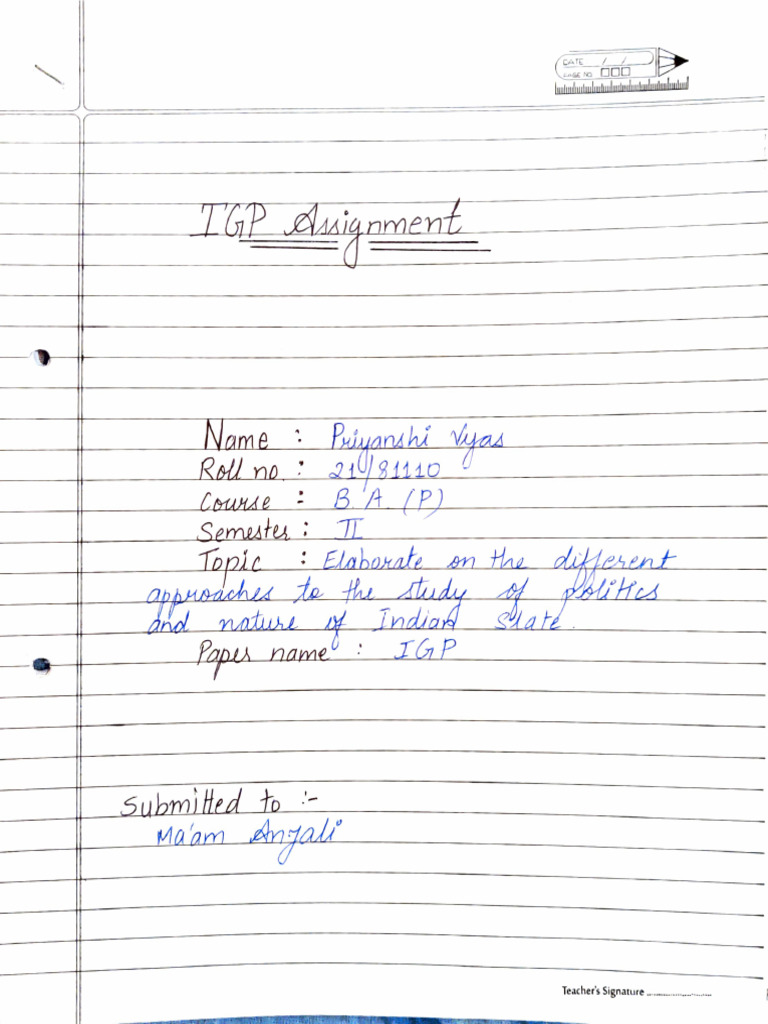 DATE / /
PAGE NO.
IGP Assignment
Name : Priyanshi Vyas
Roll no. : 21/81110
Course : B.A. (P)
Semester : II
Topic : Elaborate on the different
approaches to the study of politics
and nature of Indian State.
Paper name : IGP
Submitted to :-
Ma'am Anjali
Teacher's Signature ....................